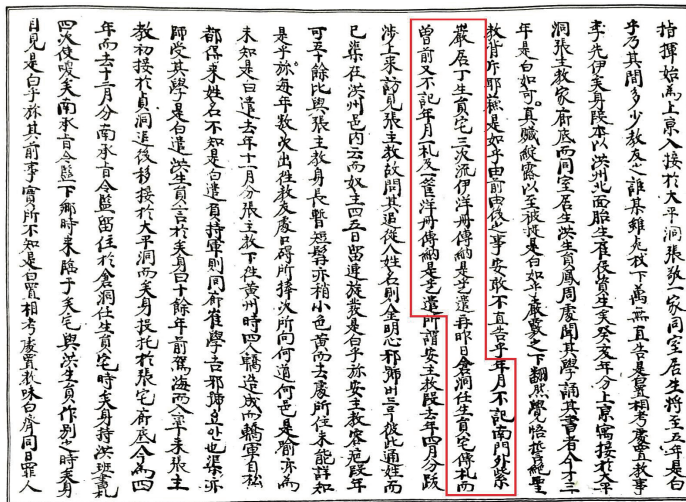 指揮始爲上京入接於大平洞張敬一家同室居生將至五年是白
乎乃其間多少敎友之誰某雖死杖下萬無直告是置相考處置敎事
李先伊矣身段本以洪州北面胎生崔俊賓生矣癸亥年分上京寓接於大平
洞張主敎家廊底而同室居生洪生員鳳周處聞其學誦其書者今才三
年是白如可眞贓綻露以至被捉是白如乎嚴覈之下翻然覺悟拒絶聖
敎背斥耶蘇是如乎由前由後之事安敢不直告乎年月不記南門外紫
巖居丁生員宅三次流伊洋冊傳納是乎遣再昨日倉洞任生員宅傳札而
曾前又不記年月一札及一筐洋冊傳納是乎遣所謂安主敎段去年四月分跋
涉上來訪見張主敎故問其追從人姓名則人全明心邪號 此彼通姓而
已渠在洪州邑內云而奴主四五日留連旋發是白乎旀安主敎容范段年
可五十餘比與張主敎身長暫短髯亦稍小色黃而去處所住未能詳知
是乎旀每年數次出往敎友處 碍所擇次所向何道何邑是喩亦爲
未知是白遣去年十一月分張主敎下往黃州時四人轎造成而轎軍自松
都得來姓名不知是白遣負持軍則同廊崔學 邪號 也渠亦
師受其學是白遣洪生員言於矣身曰十餘年前駕海而入率來張主
敎初接於貞洞退後移接於大平洞而矣身投托於張宅廊底今爲四
年而去十二月分南承旨令監留住於倉洞任生員宅時矣身持洪班書札
四次使喚矣南承旨令監下鄕時來臨于矣宅與洪生員作別之時矣身
目見是白乎旀其前事實所不知是白置相考處置敎味白齊同日罪人